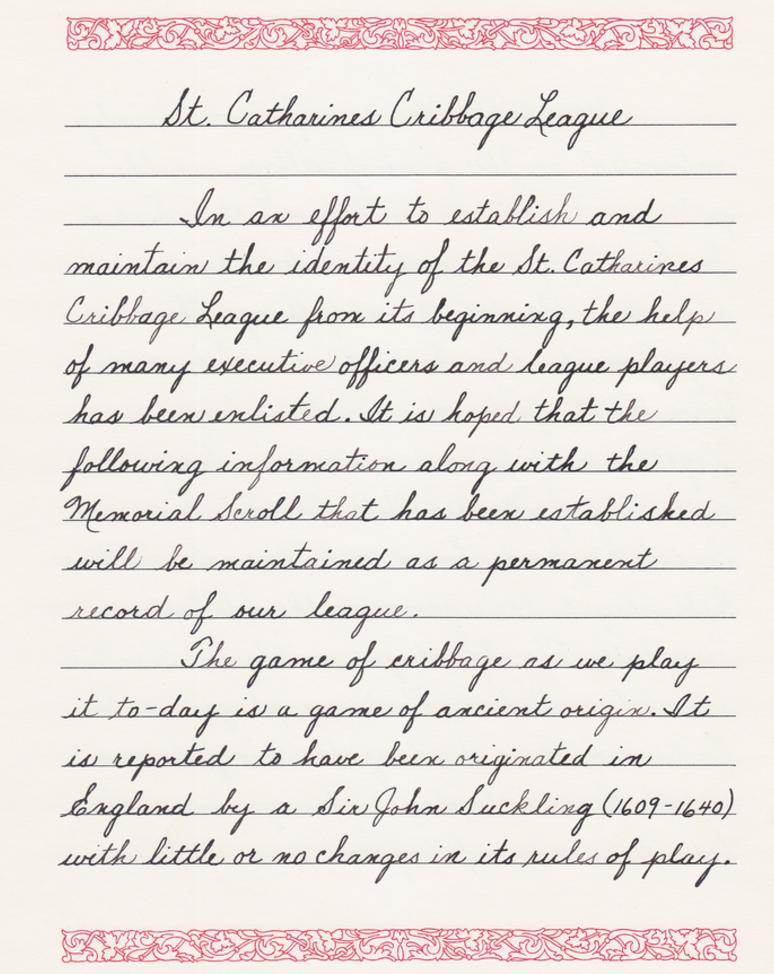 St. Catharines Cribbage League
In an effort to establish and
maintain the identity of the St. Catharines
Cribbage League from its beginning, the help
of many executive officers and league players
has been enlisted. It is hoped that the
following information along with the
Memorial Scroll that has been established
will be maintained as a permanent
record of our league.
The game of cribbage as we play
it to-day is a game of ancient origin. It
is reported to have been originated in
England by a Sir John Suckling (1609-1640)
with little or no changes in its rules of play.